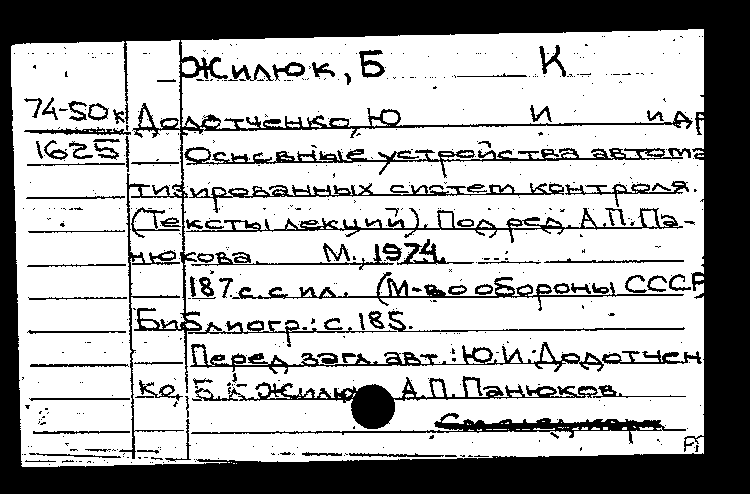 Жилюк, Б К
74-50к Додотченко, Ю И и др
1625 Основные устройства автома
тизированных систем контроля.
(Тексты лекций). Под ред. А.П.Па-
нюкова. М., 1974.
187 с. с ил. (М-во обороны СССР
Библиогр.: с. 185.
Перед загл. авт.: Ю.И. Додотчен
ко, Б.К Жилюк А.П. Панюков.